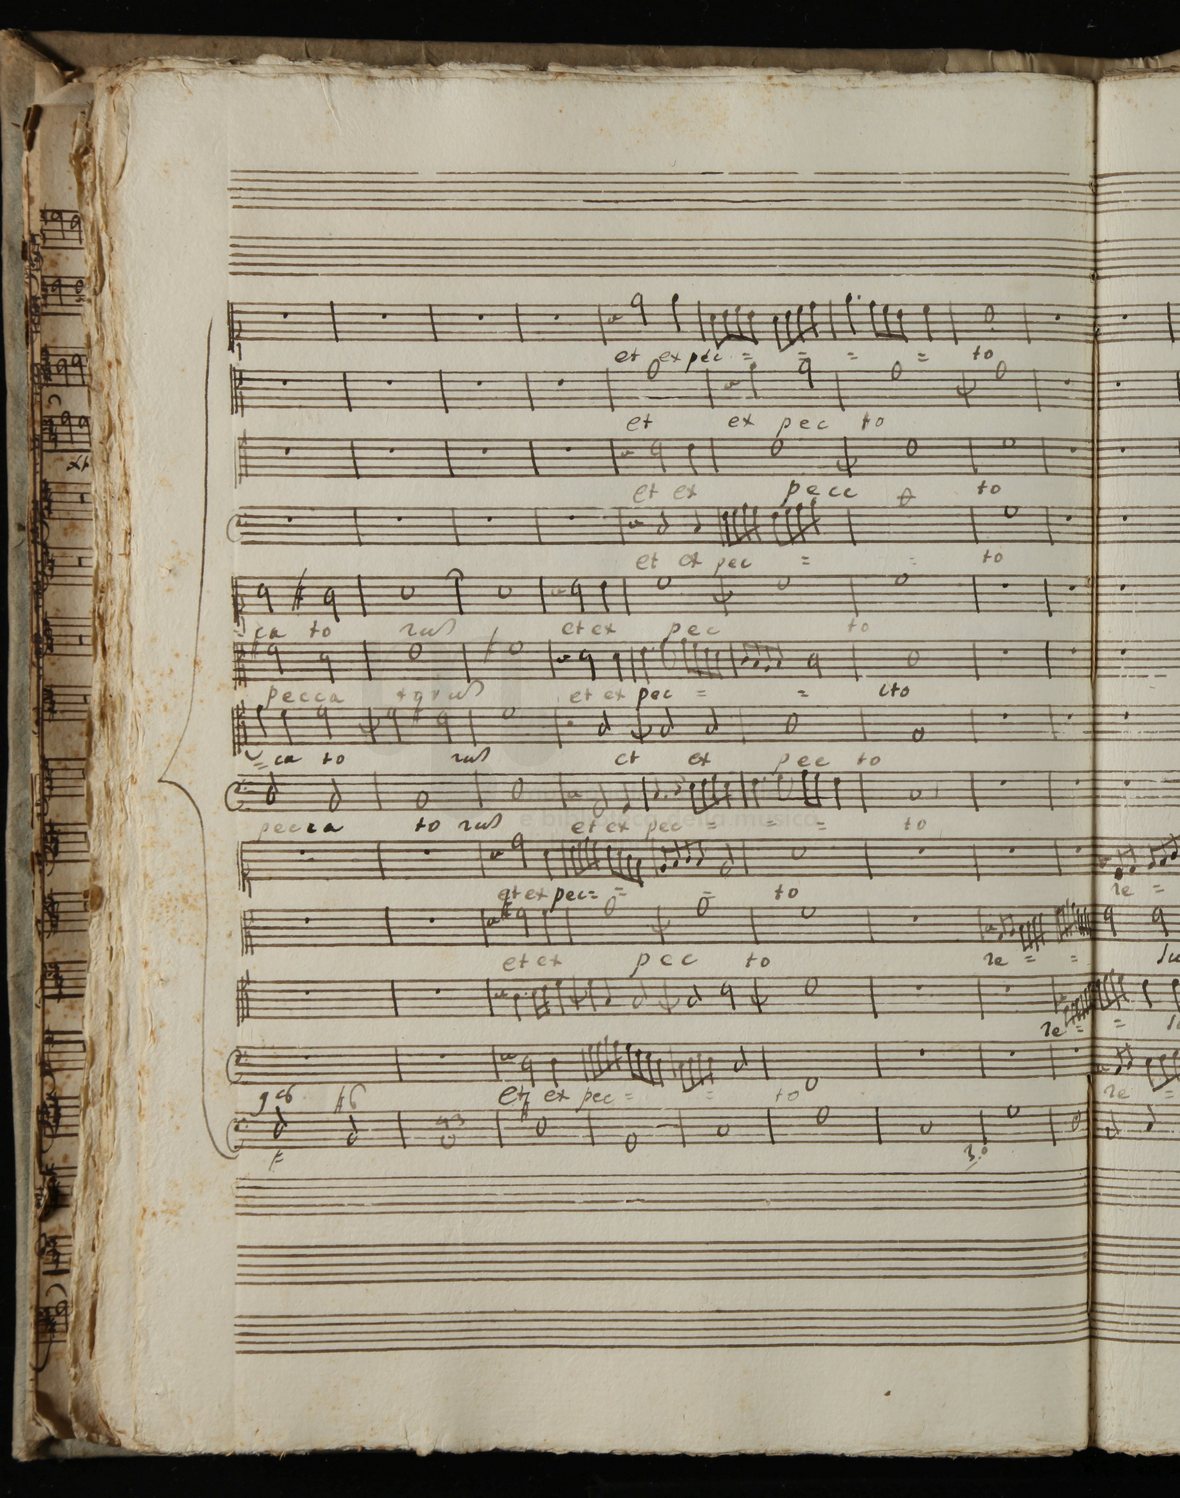 et expec = = = = to
et ex pec to
et ex pecc to
et ex pec = = to
ca to rum et ex pec to
pecca torum et ex pec = = cto
= ca to rum et ex pec to
pecca to rum et ex pec = = = to
e biblioteca della musica
et ex pec = = = to re =
et ex pec to re = =
re = =
et ex pec = = to re =
9 8 6 #6
4 3
3.º